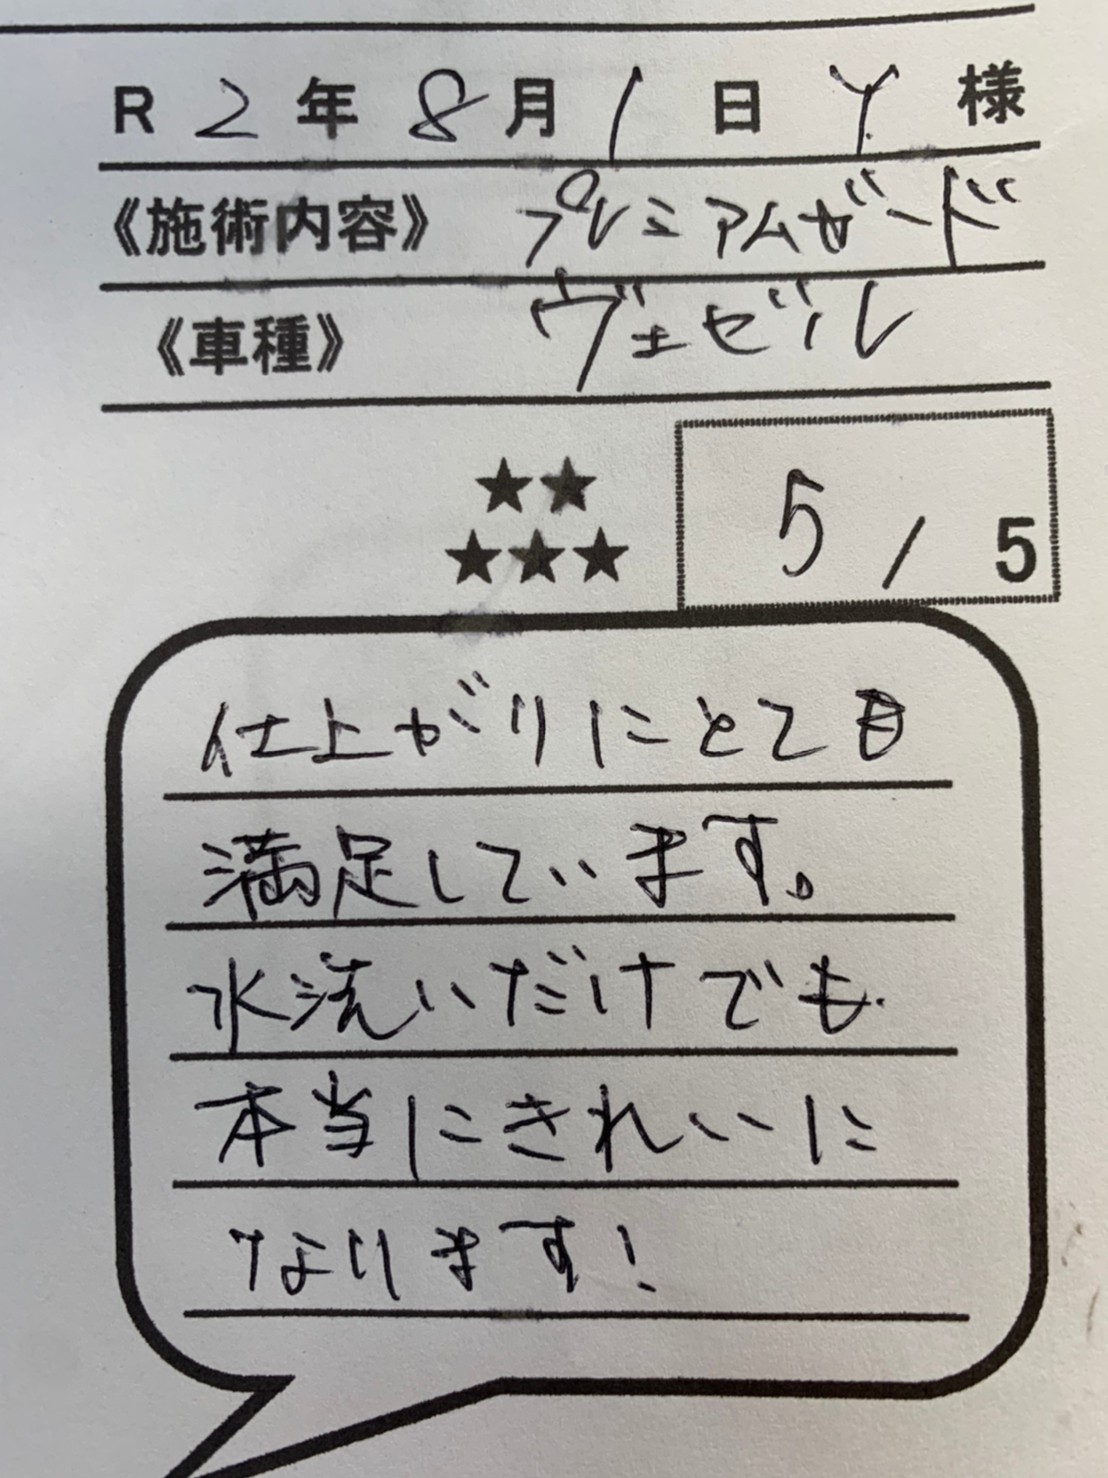 R 2 年 8 月 1 日 Y. 様
《施術内容》 プレミアムガード
《車種》 ヴェゼル
★★
★★★
5 / 5
仕上がりにとても
満足しています。
水洗いだけでも
本当にきれいに
なります!